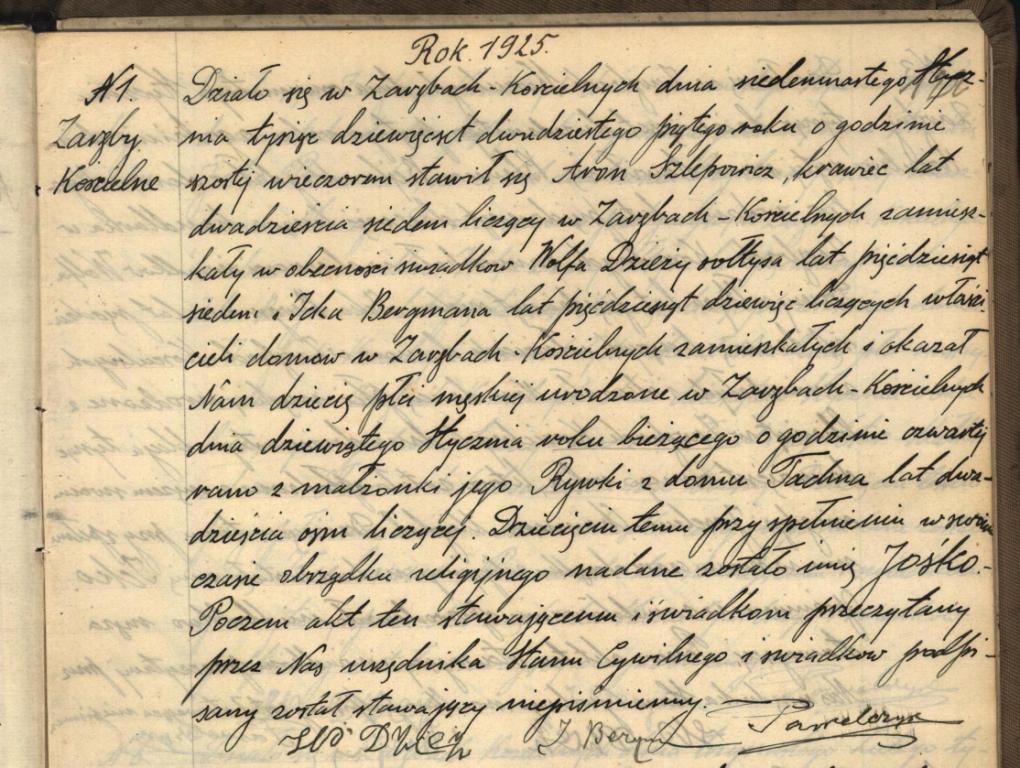 Rok 1925.
N 1.
Zaręby
Kościelne
Działo się w Zarębach-Kościelnych dnia siedemnastego stycz-
nia tysiąc dziewięćset dwudziestego piątego roku o godzinie
szóstej wieczorem stawił się Aron Szlepowicz, krawiec lat
dwadzieścia siedem liczący w Zarębach-Kościelnych zamiesz-
kały w obecności świadków Wolfa Dzięży sołtysa lat pięćdziesiąt
siedem i Icka Bergmana lat pięćdziesiąt dziewięć liczących właści-
cieli domów w Zarębach-Kościelnych zamieszkałych i okazał
Nam dziecię płci męskiej urodzone w Zarębach-Kościelnych
dnia dziewiątego stycznia roku bieżącego o godzinie czwartej
rano z małżonki jego Rywki z domu Tachna lat dwa-
dzieścia ośm liczącej. Dziecięciu temu przy spełnieniu w swoim
czasie obrządku religijnego nadane zostało imię Jośko.-
Poczem akt ten stawającemu i świadkom przeczytany
przez Nas urzędnika Stanu Cywilnego i świadków podpi-
sany został stawający niepiśmienny.
Pawelczyk
J Bergm